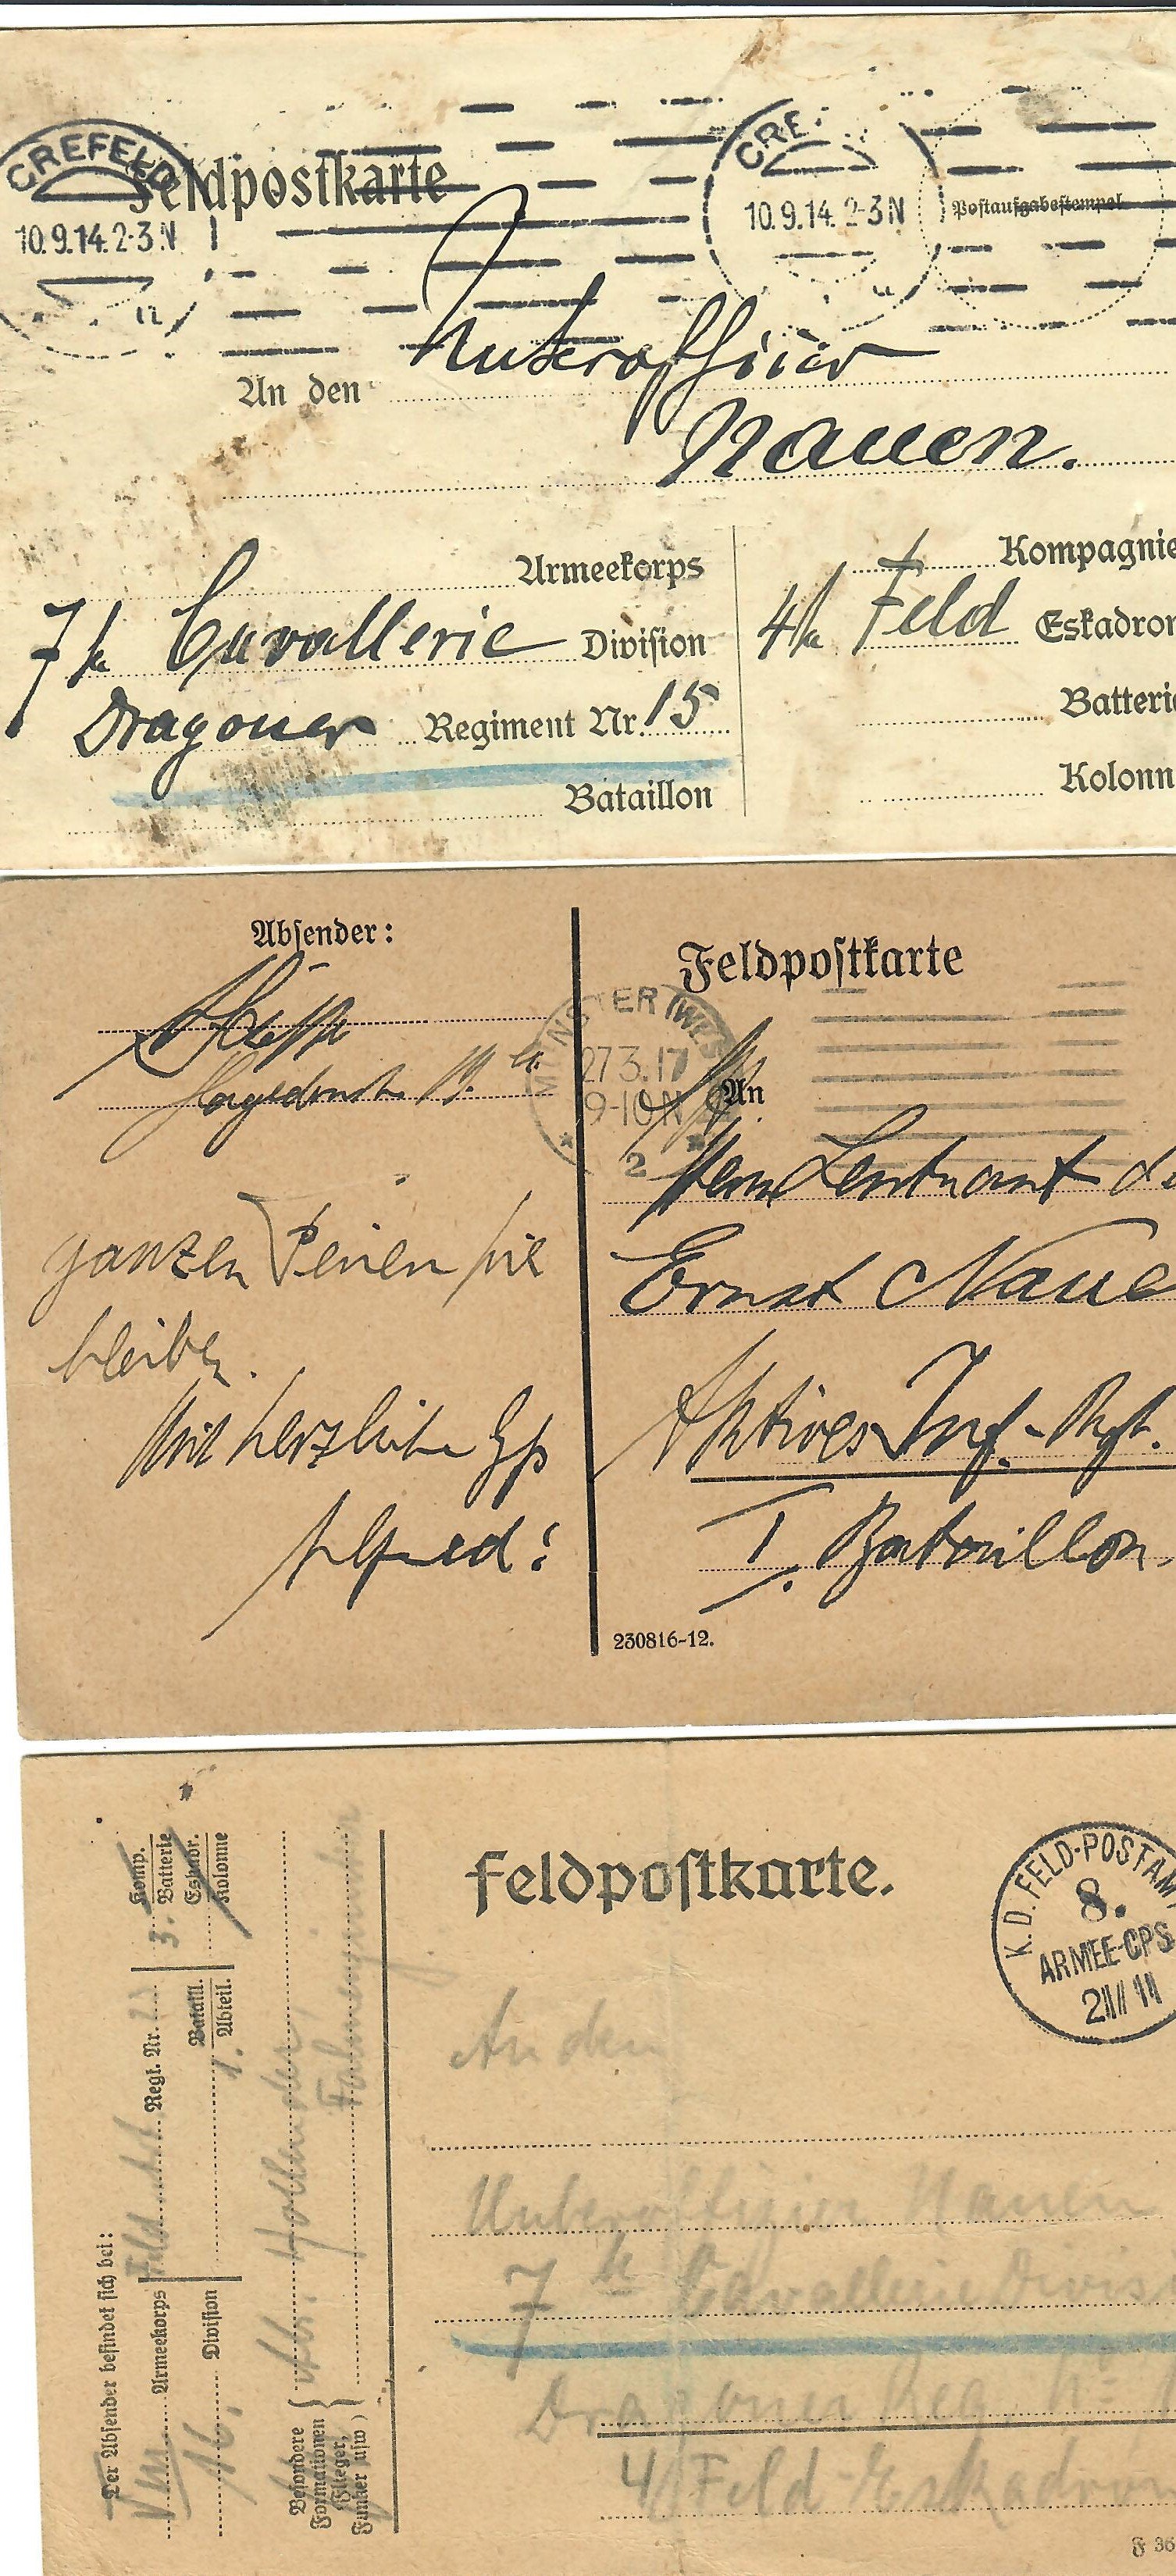 CREFELD
10.9.14. 2-3 N
Feldpostkarte
CRE
10.9.14. 2-3 N
Postaufgabestempel
An den Unteroffizier
Nauen.
Armeekorps
7te Cavallerie Division
Dragoner Regiment Nr. 15
Bataillon
Kompagnie
4te Feld Eskadron
Batterie
Kolonn
Absender:
19.
ganzen Ferien hie
bleiben.
Mit herzlichen
Alfred!
Feldpostkarte
MÜNSTER (WES
27.3.17
9-10 N
2
An
Herrn Leutnant d
Ernst Naue
Aktives Inf.-Rgt.
I. Bataillon.
230816-12.
Der Absender befindet sich bei:
VIII Armeekorps
16. Division
Feld Regt. Nr.
Bataill.
1. Abteil.
3. Komp.
Batterie
Eskadr.
Kolonne
Besondere
Formationen
(Flieger,
Funker usw.)
Feldpostkarte.
K.D. FELD-POSTAM
8.
ARMEE-CPS
An den
Unteroffizier Nauen
7te Cavallerie Divis
Dragoner Reg. No
4/Feld-Eskadron
F 36